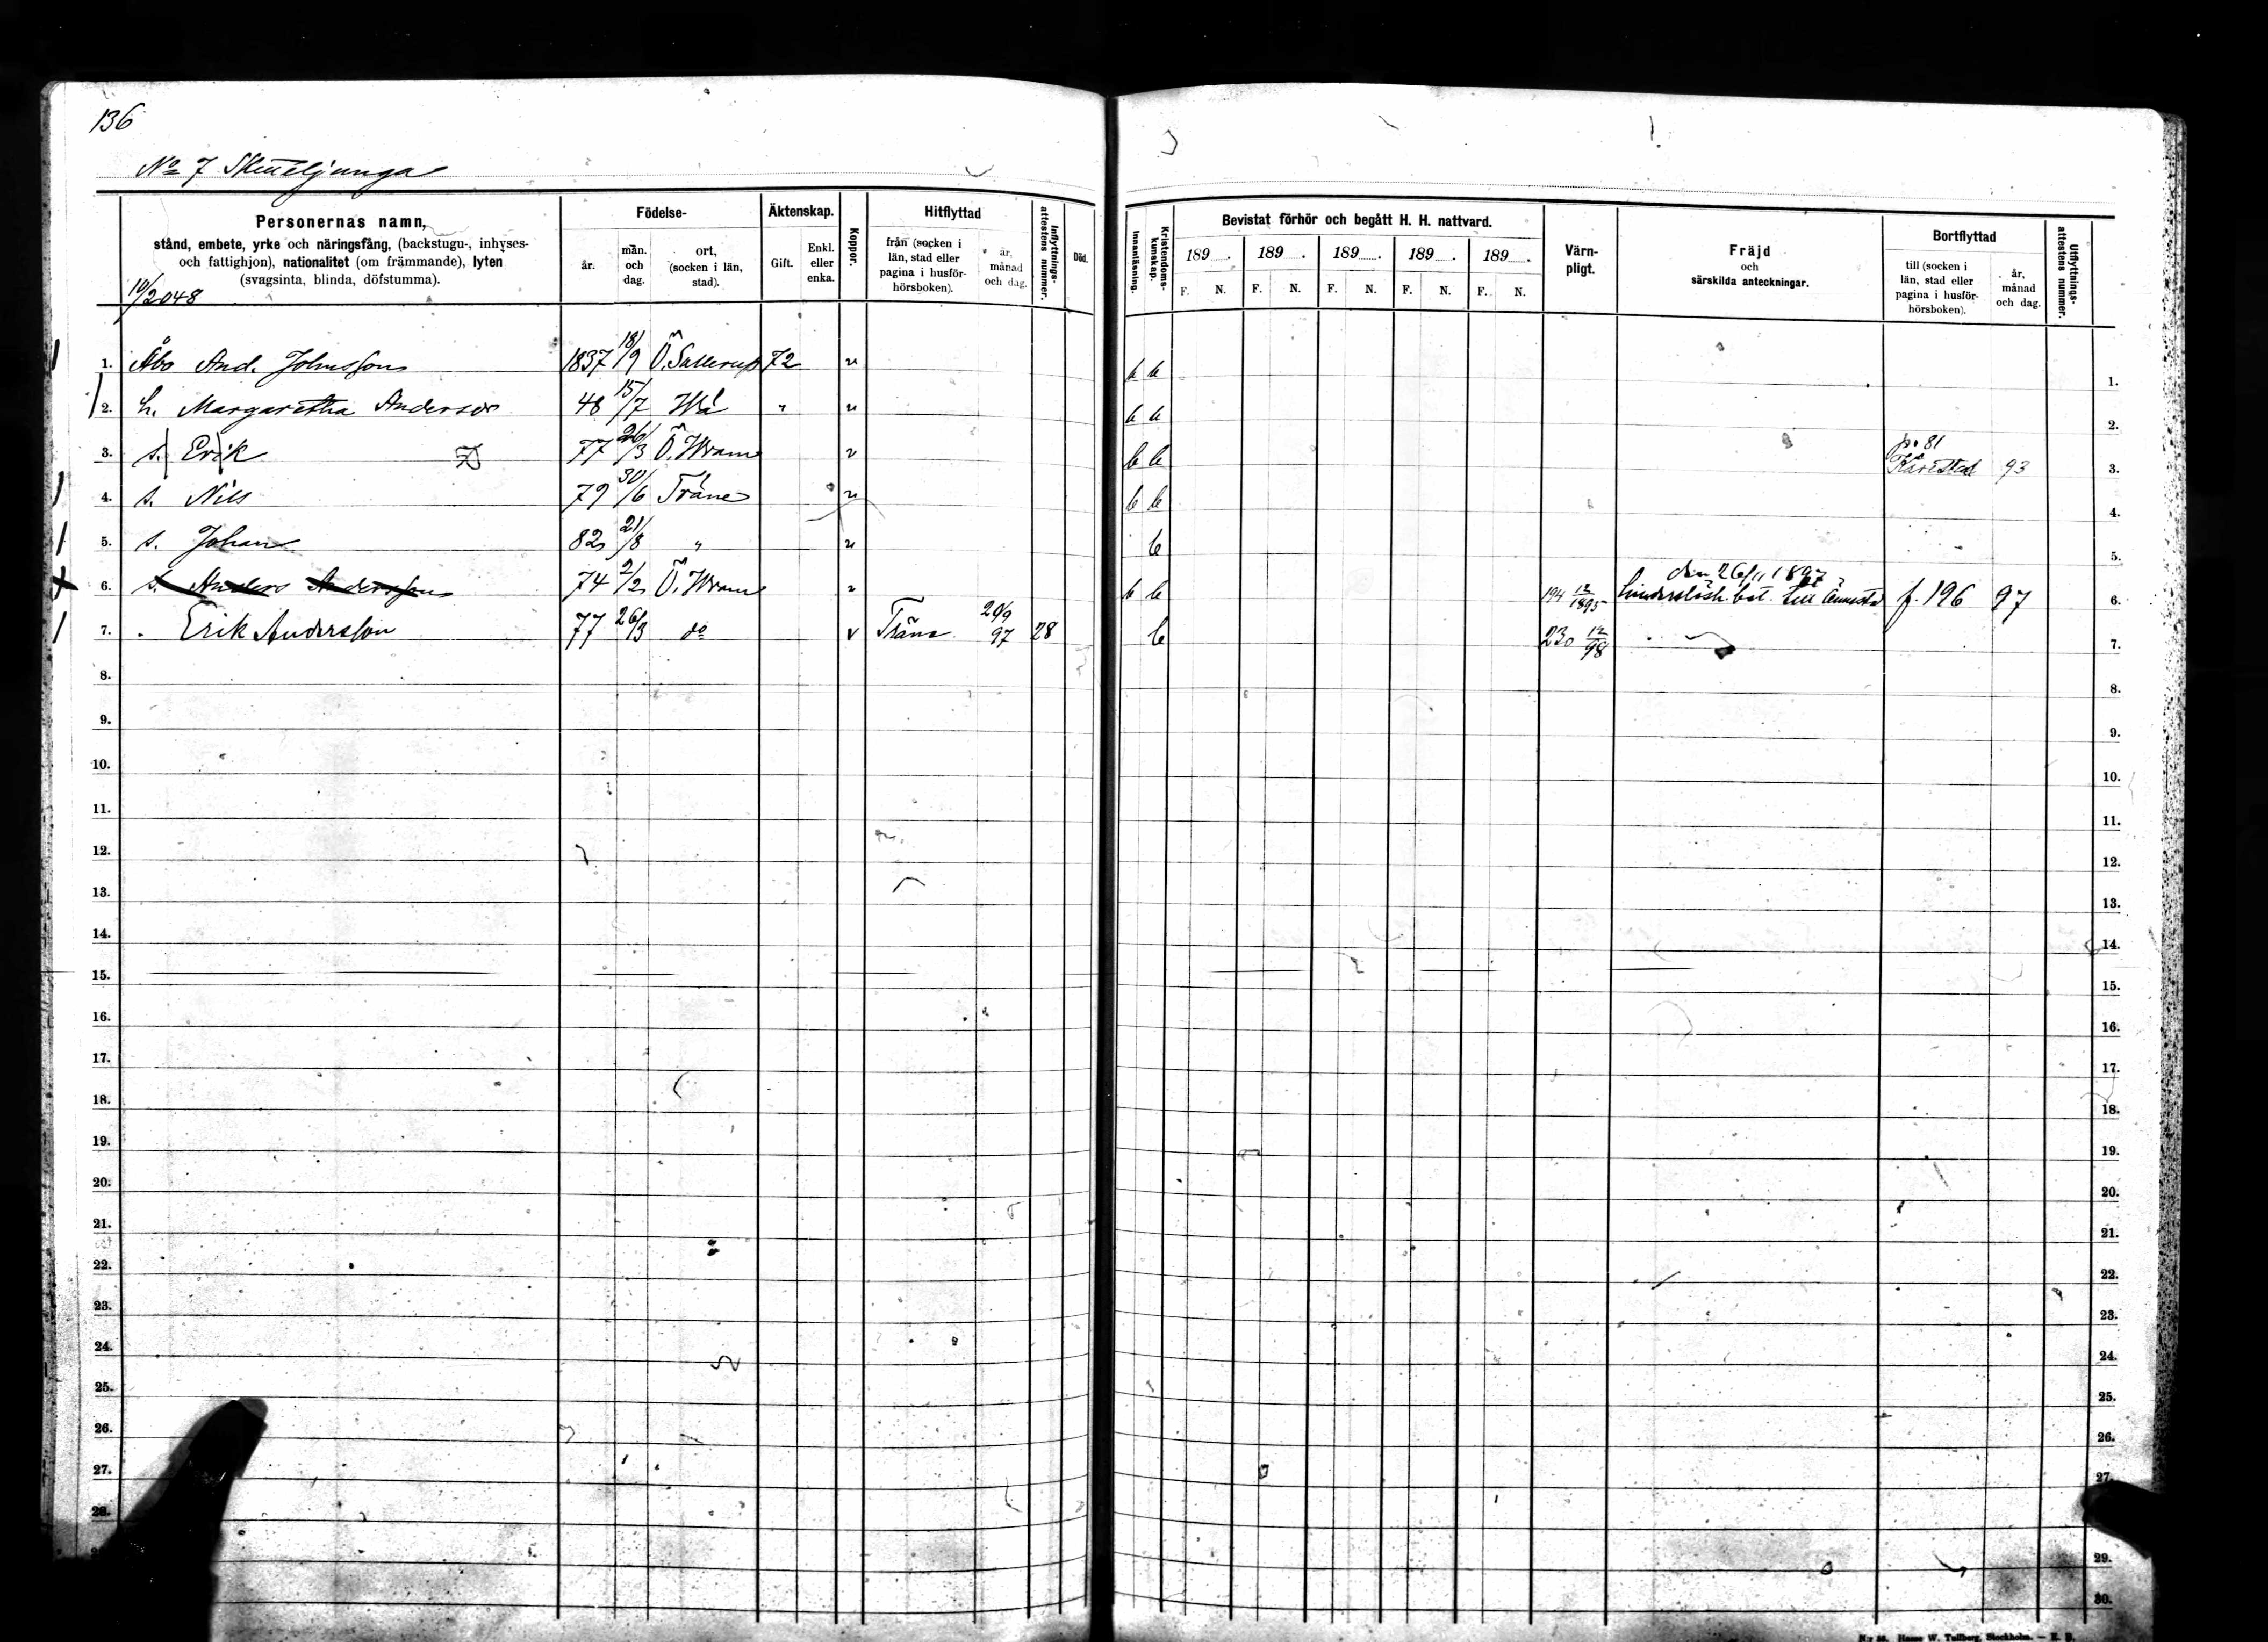 136
No 7 Skättljunga
Personernas namn,
stånd, embete, yrke och näringsfång, (backstugu-, inhyses-
och fattighjon), nationalitet (om främmande), lyten
(svagsinta, blinda, döfstumma).
10/2048
Födelse-
år.
mån. och dag.
ort, (socken i län, stad).
Äktenskap.
Gift.
Enkl. eller enka.
Koppor.
Hitflyttad
från (socken i län, stad eller pagina i husför-hörsboken).
år, månad och dag.
Inflyttnings-attestens nummer.
Död.
Innanläsning.
Kristendoms-kunskap.
Bevistat förhör och begått H. H. nattvard.
189 . 189 . 189 . 189 . 189 .
F. N. F. N. F. N. F. N. F. N.
Värn-pligt.
Fräjd
och
särskilda anteckningar.
Bortflyttad
till (socken i län, stad eller pagina i husför-hörsboken).
år, månad och dag.
Utflyttnings-attestens nummer.
1. Åbo And. Johnsson 1837 18/9 Ö. Sallerup 72 v b b 1.
2. h. Margaretha Andersdr 48 15/7 Wä " v b b 2.
3. s. Erik 77 26/3 Ö. Wram v b b p. 81 93 3.
4. s. Nils 79 30/6 Träne v b b 4.
5. s. Johan 82 21/8 " v b 5.
6. s. Anders Andersson 74 2/2 Ö. Wram v b b 194 12/1895 den 26/11 1897 till f. 196 97 6.
7. Erik Andersson 77 26/3 do v Träne 20/9 97 28 b 230 12/98 7.
8. 8.
9. 9.
10. 10.
11. 11.
12. 12.
13. 13.
14. 14.
15. 15.
16. 16.
17. 17.
18. 18.
19. 19.
20. 20.
21. 21.
22. 22.
23. 23.
24. 24.
25. 25.
26. 26.
27. 27.
28.
29.
30.
W. Tullberg, Stockholm.